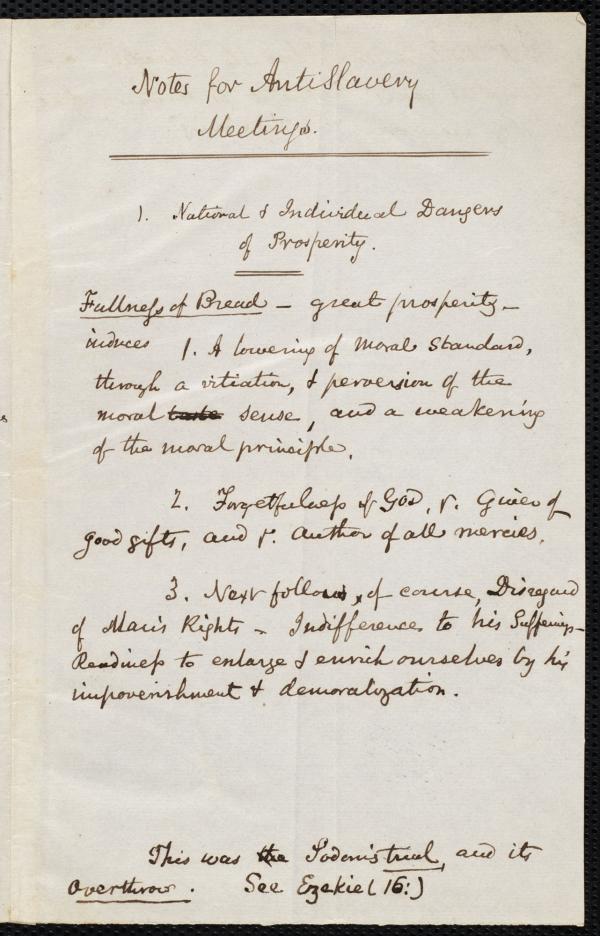 Notes for AntiSlavery
Meetings.
1. National & Individual Dangers
of Prosperity.
Fullness of Bread – great prosperity –
induces 1. A lowering of moral standard,
through a vitiation, & perversion of the
moral taste sense, and a weakening
of the moral principle.
2. Forgetfulness of God, ye. Giver of
good gifts, and ye. Author of all mercies.
3. Next follows, of course, Disregard
of Man's Rights – Indifference to his Sufferings –
Readiness to enlarge & enrich ourselves by his
impoverishment & demoralization.
This was the Sodom's trial, and its
overthrow. See Ezekiel (16:)